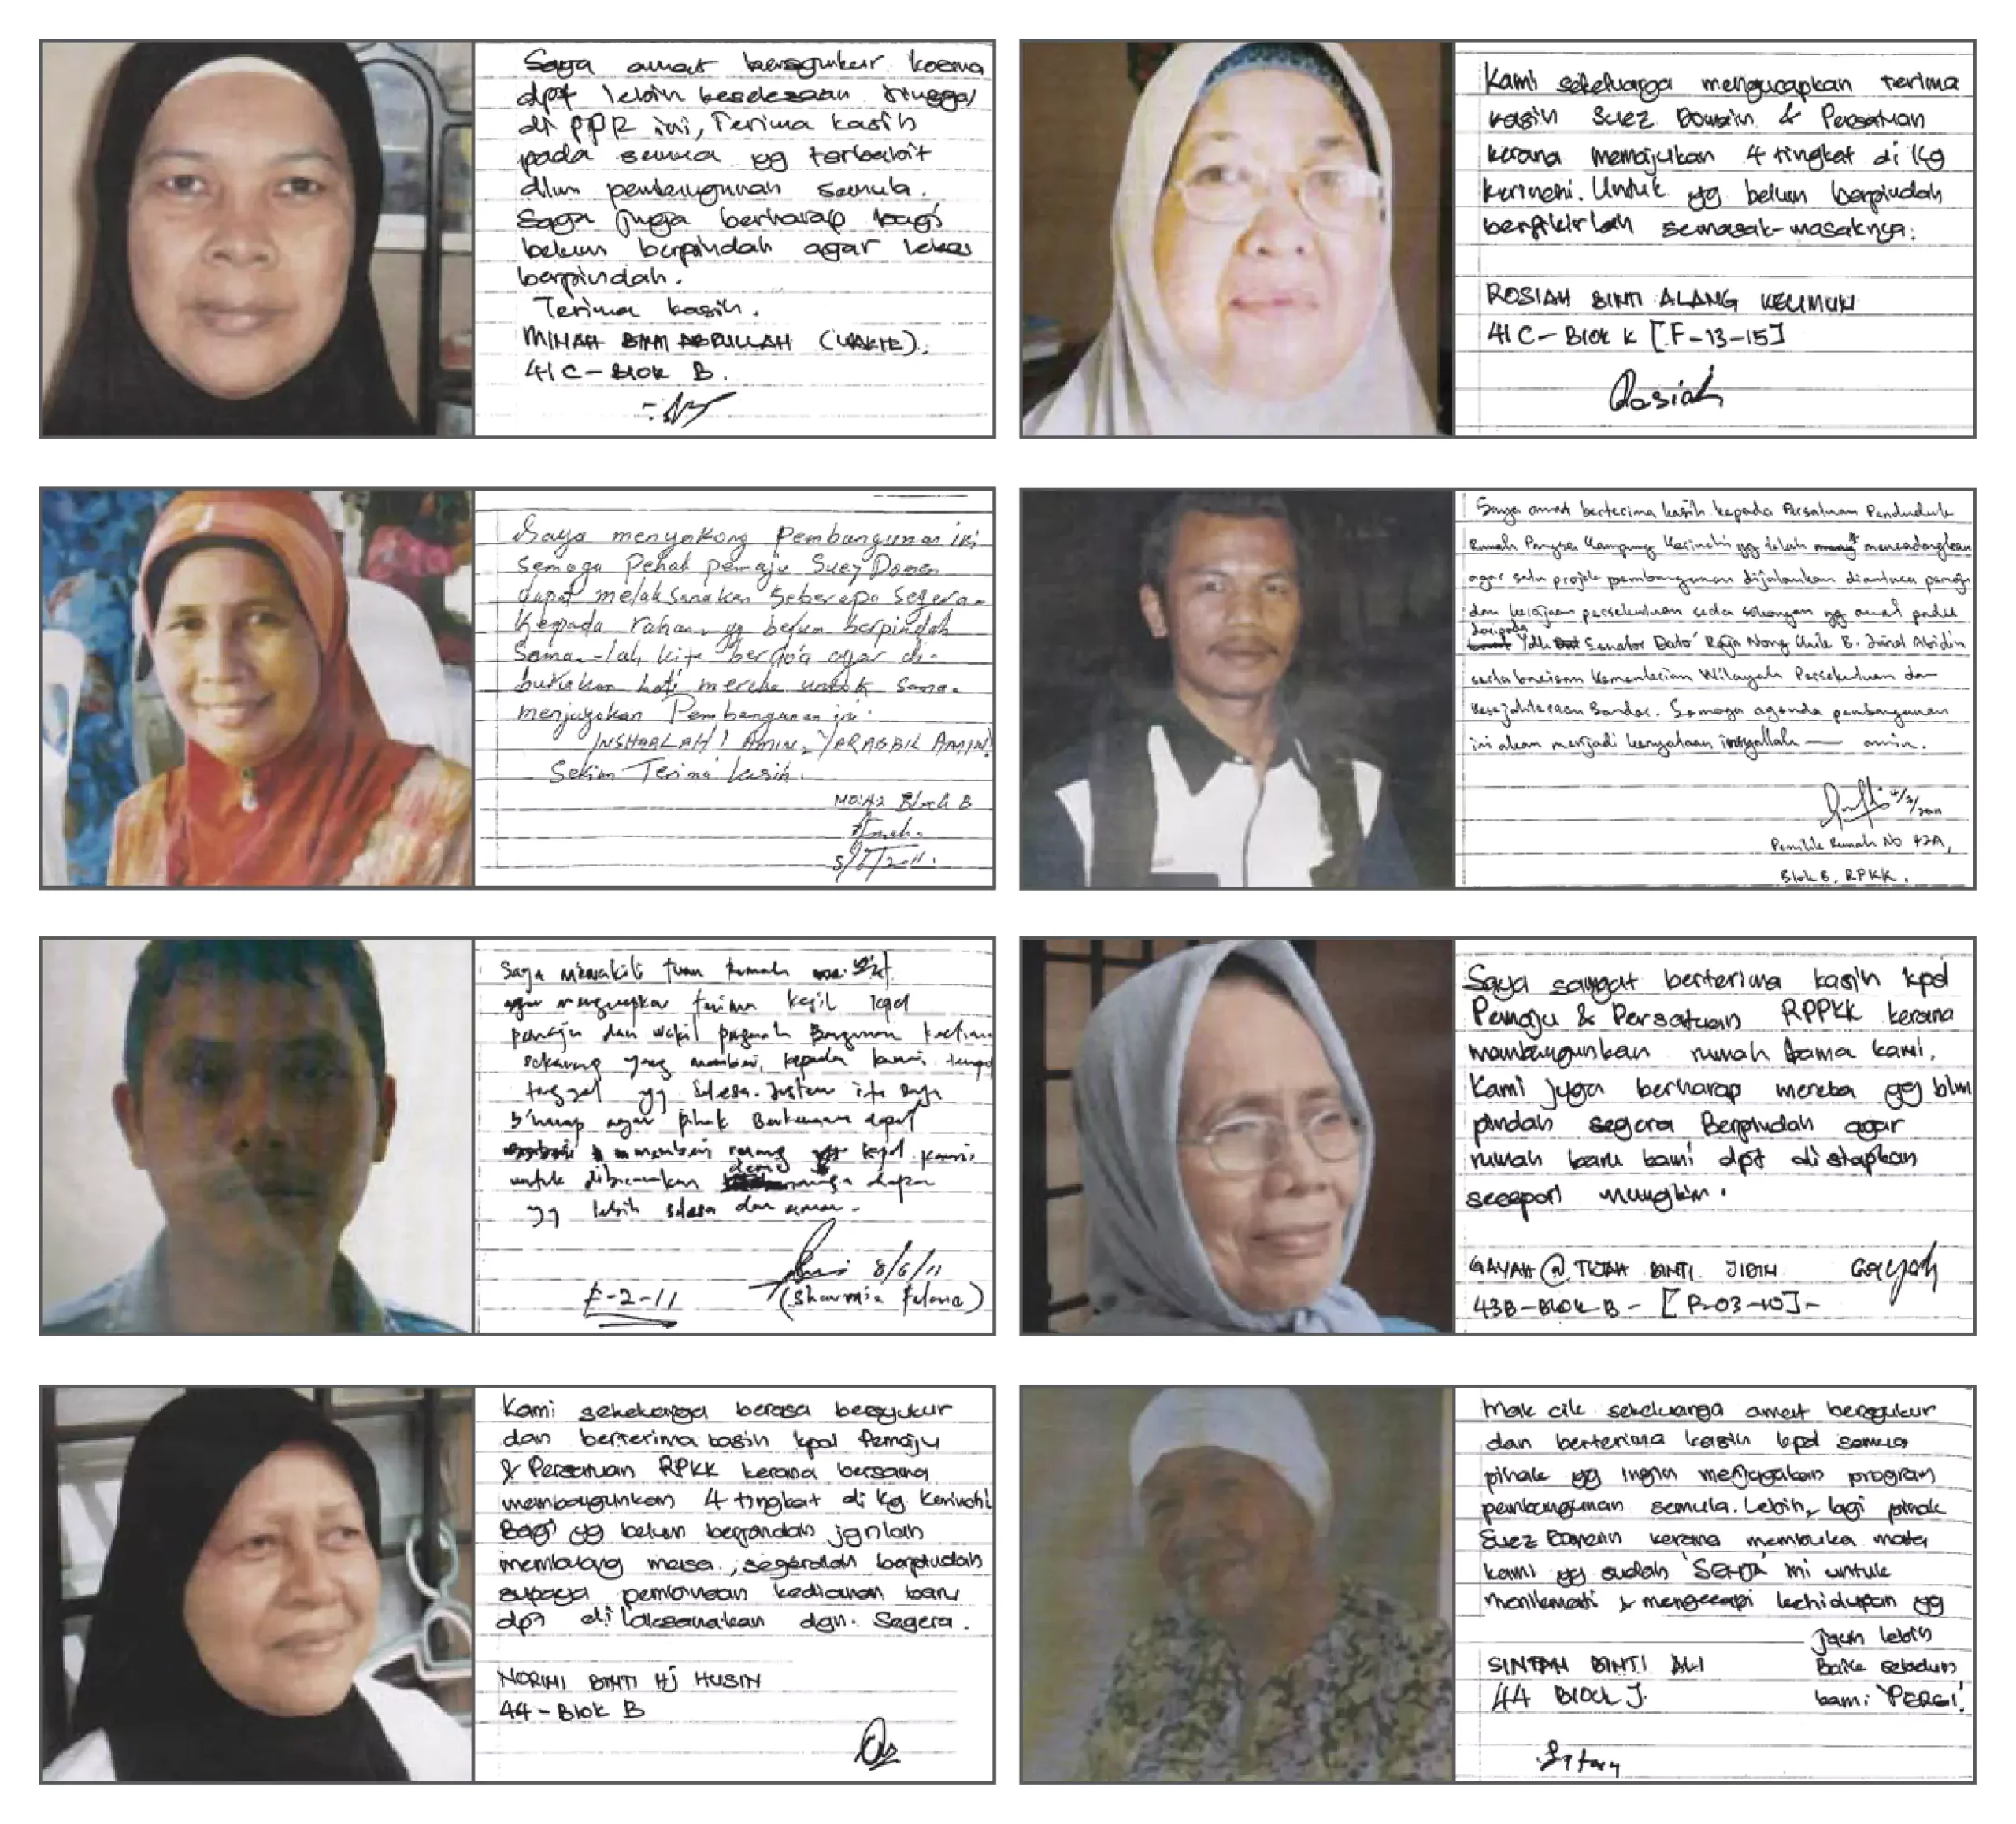 Saya amat bersyukur kerna
dpt lebih keselesaan tinggal
di PPR ini, Terima kasih
pada semua yg terbabit
dlm pembangunan semula.
Saya juga berharap bagi
belum berpindah agar lekas
berpindah.
Terima kasih.
MINAH BINTI ABDULLAH (WAKIL).
41C - Blok B.
Kami sekeluarga mengucapkan terima
kasih Suez Domain & Persatuan
kerana memajukan 4 tingkat di Kg
Kerinchi. Untuk yg belum berpindah
berfikirlah semasak-masaknya.
ROSIAH BINTI ALANG
41C - Blok K [F-13-15]
Rosiah
Saya menyokong Pembangunan ini
semoga Pehak pemaju Suez Domen
dapat melaksanakan seberapa segera.
Kepada rakan yg belum berpindah
sama-lah kita berdo'a agar di-
bukakan hati mereka untok sama.
menjayakan Pembangunan ini.
INSHAALAH! AMIN, YARABBIL AMIN!
Sekian Terima kasih.
NO: 42 Block B
Saya amat berterima kasih kepada Persatuan Penduduk
Rumah Pangsa Kampung Kerinchi yg telah mencadangkan
agar satu projek pembangunan dijalankan diantara pemaju
dan kerajaan persekutuan serta sokongan yg amat padu
daripada
Senator Dato' Raja Nong Chik B. Zainal Abidin
serta barisan Kementerian Wilayah Persekutuan dan
Kesejahteraan Bandar. Semoga agenda pembangunan
ini akan menjadi kenyataan insyallah — amin.
Pemilik Rumah No 42A,
Blok B, RPKK.
Saya mewakili tuan rumah
agar mengucapkan terima kasih kpd
pemaju dan wakil
sekarang yang memberi kepada kami
tinggal yg selesa. Justeru itu saya
agar pihak Berkenaan dapat
memberi ruang kpd kami
demi
untuk dibicarakan
yg lebih selesa dan aman.
8/6/11
F-2-11
Saya sangat berterima kasih kpd
Pemaju & Persatuan RPPKK kerana
membangunkan rumah lama kami.
Kami juga berharap mereka yg blm
pindah segera Berpindah agar
rumah baru kami dpt disiapkan
secepat mungkin.
GAYAH @ TIJAH BINTI JIDIN Gayah
43B - Blok B - [P-03-10] -
Kami sekeluarga berasa bersyukur
dan berterima kasih kpd Pemaju
& Persatuan RPKK kerana bersama
membangunkan 4 tingkat di Kg. Kerinchi
Bagi yg belum berpindah janlah
membuang masa, segeralah berpindah
supaya pembinaan kediaman baru
dpt dilaksanakan dgn. segera.
NORINI BINTI HJ HUSIN
44 - Blok B
Mak cik sekeluarga amat bersyukur
dan berterima kasih kpd semua
pihak yg ingin menjayakan program
pembangunan semula. Lebih, lagi pihak
Suez Domain kerana membuka mata
kami yg sudah 'SENJA' ini untuk
menikmati & mengecapi kehidupan yg
jauh lebih
Baik sebelum
kami 'PERGI'.
SINTAN BINTI ALI
44 Block J.